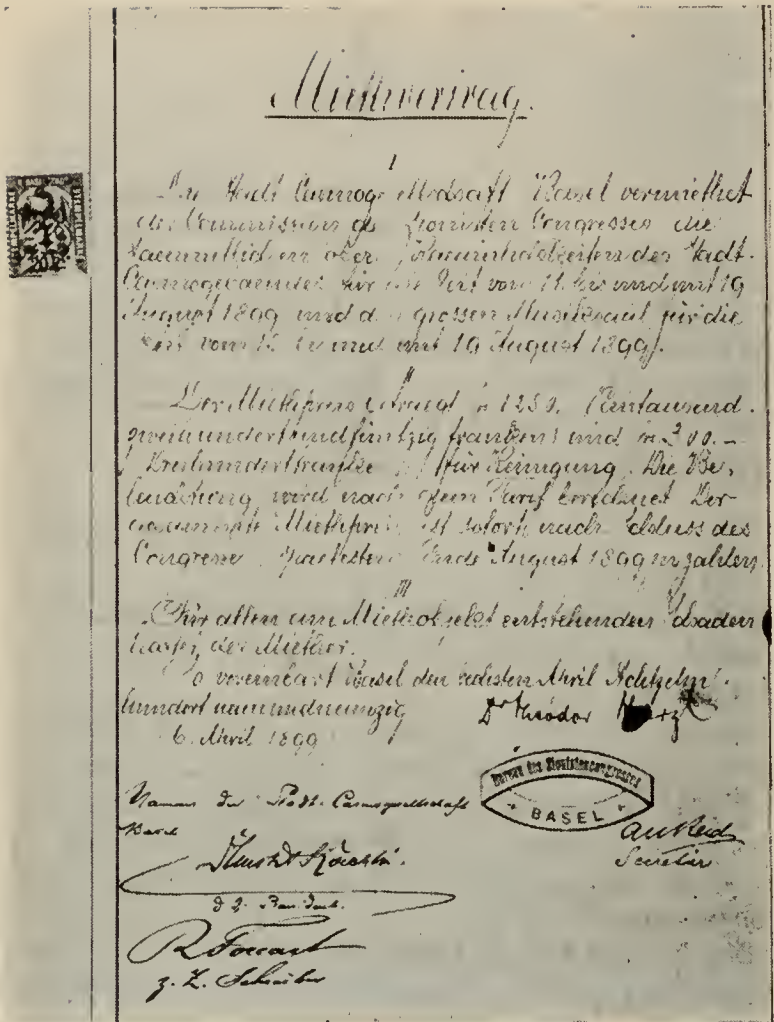 Miethvertrag.
I
Die Stadt Casinogesellschaft Basel vermiethet
der Commission des Zionisten Congresses die
saemmtlichen obern Raeumlichkeiten des Stadt-
Casinogebaeudes für die Zeit vom 11. bis und mit 19
August 1899 und den grossen Musiksaal für die
Zeit vom 15 bis und mit 19 August 1899.
II
Der Miethpreis betraegt fr 1250. (Eintausend
zweihundertundfünfzig Franken) und fr 300.–
(Dreihundert Franken) für Reinigung. Die Be-
leuchtung wird nach dem Tarif berechnet Der
gesammte Miethpreis ist sofort nach Schluss des
Congresses spaetestens Ende August 1899 zu zahlen
III
Für allen am Miethobjekt entstehenden Schaden
haftet der Miether.
So vereinbart Basel den sechsten April Achtzehn
hundert neunundneunzig
6. April 1899
Dr Theodor Herzl
Namens der Stadt-Casinogesellschaft
Basel
Bureau des Zionistencongresses
BASEL
Secretär
z. Z. Schreiber